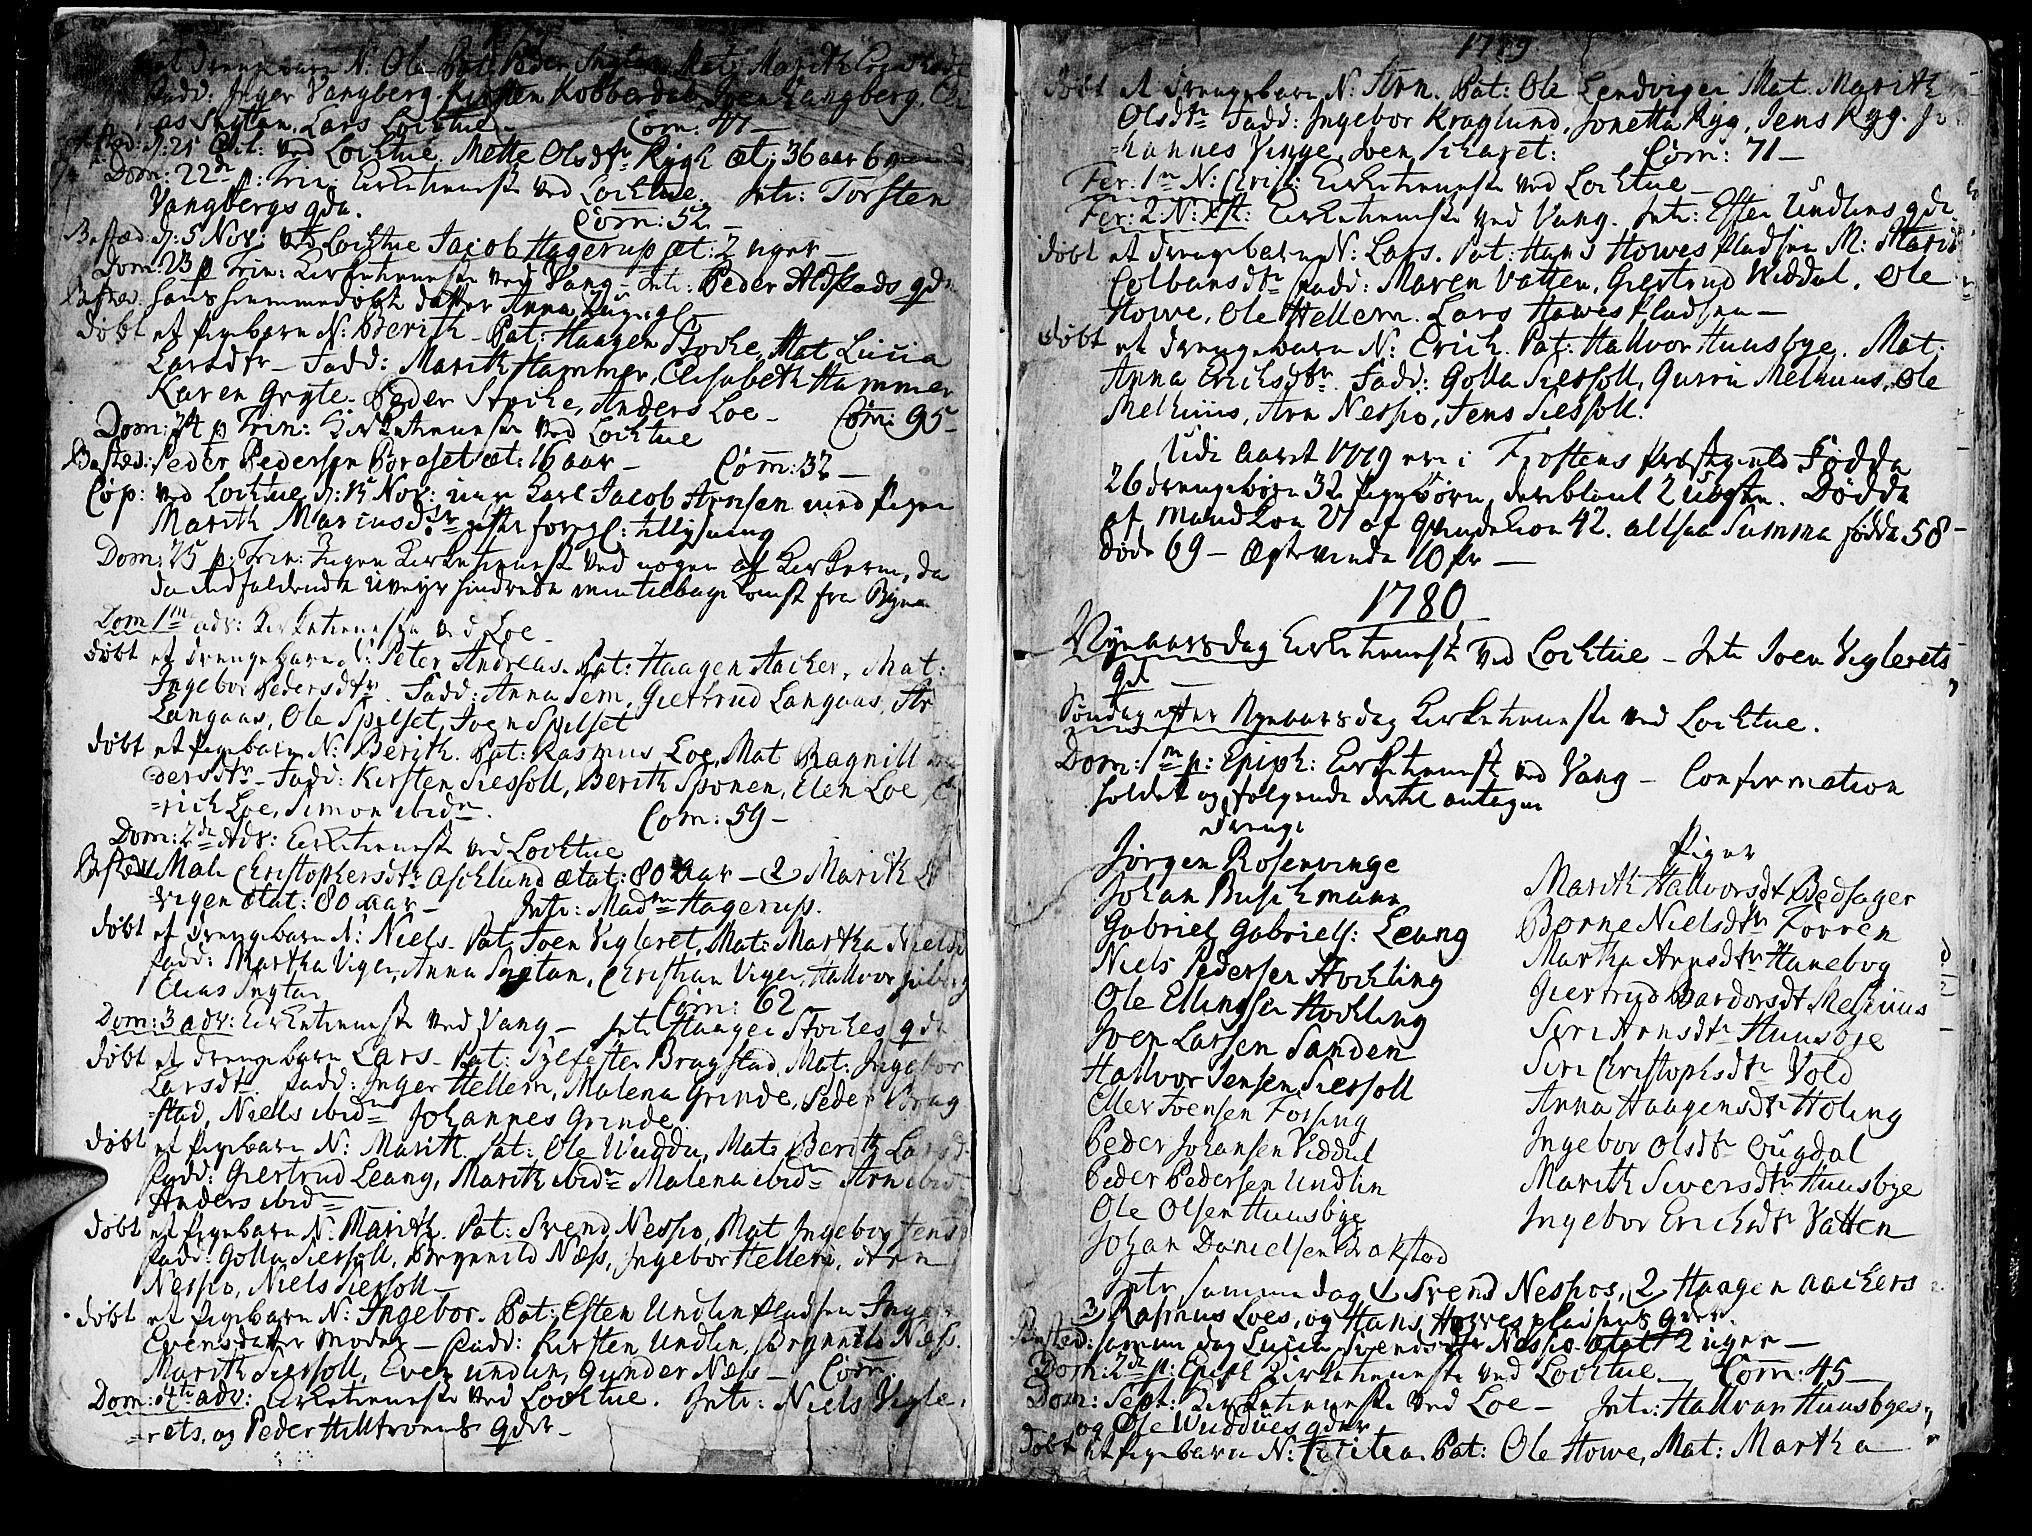 et drengebarn N: Ole Pat: Peder Ingtan Mat: Marith
Fadd: Inger Vangberg. Kirsten Kobberdal, Sven Vangberg, Eli
as Ingtan, Lars Locktue. Com: 41 –
d: 25 Oct: ved Locktue Mette Olsdtr Rygh æt: 36 aar 6
Dom: 22de p: Trin: Kirketieneste ved Locktue. Intr: Torsten
Vangbergs qda. Com: 52 –
Bested: d: 5 Nov: ved Locktue Jacob Hagerup æt: 2 uger –
Dom: 23 p Trin: Kirketieneste ved Vang – Intr: Peder Aldstads qda
Bested: hans hiemmedøbte datter Anna
døbt et Pigebarn N: Berith – Pat: Haagen Stocke, Mat Lucia
Larsdtr – Fadd: Marith Hammer, Elisabeth Hammer
Karen Gryte. Peder Stocke, Anders Loe – Com: 95 –
Dom: 24 p Trin: Kirketieneste ved Locktue
Bested: Peder Pedersen Boraset æt: 16 aar – Com: 32 –
Cop: ved Locktue d: 15 Nov: ung Karl Jacob Arnsen med Pigen
Marith Mariusdtr efter foregl: tillysning
Dom: 25 p: Trin: Ingen Kirketieneste ved nogen af Kirkerne, da
da indfaldende Uveyr hindrede min tilbage komst fra Byen
Dom 1m adv: Kirketieneste ved Loe –
døbt et drengebarn N: Peter Andreas. Pat: Haagen Aacker, Mat:
Ingebor Pedersdtr. Fadd: Anna Sem, Giertrud Langaas,
Langaas, Ole Spilset, Joen Spilset
døbt et Pigebarn N: Berith. Pat: Rasmus Loe, Mat Ragnill
dersdtr – Fadd: Kirsten Siessoll, Berith Sponen, Elen Loe,
=rich Loe, Simon ibidm. Com: 59 –
Dom: 2de Adv: Kirketieneste ved Locktue
Bested Mali Christophersdtr Aschlund ætat: 80 aar – 2 Marith
vigen ætat: 80 aar – Intr: Madm Hagerup.
døbt et drengebarn N: Niels – Pat: Joen Vigleret, Mat: Martha Nielsd
Fadd: Martha Viger, Anna Ingtan, Christian Viger, Hallvor
Elias Ingtan Com: 62 –
Dom: 3 adv: Kirketieneste ved Vang – Intr Haagen Stockes qda
døbt et drengebarn Lars – Pat: Sylfester Bragstad, Mat: Ingebor
Larsdtr. Fadd: Inger Hellem, Malena Grinde, Peder Brag
=stad, Niels ibidm Johannes Grinde.
døbt et Pigebarn N: Marith. Pat: Ole Wuddu, Mat: Berith Larsd
Fadd: Giertrud Leang, Marith ibidm Malena ibidm Arn ibid
Anders ibidm
døbt et Pigebarn N: Marith. Pat: Svend Nespo, Mat Ingebor Jens
Fadd: Golla Siessoll, Brynnild Næss, Ingebor Hellem, Arn
Nespo, Niels Siessoll –
døbt et Pigebarn N: Ingebor. Pat: Esten Undlinpladsen Inge
Evensdatter Moder – Fadd: Kirsten Undlin, Brynnild Næss.
Marith Siessoll, Even Undlin, Gunder Næss – Com:
Dom: 4de adv: Kirketieneste ved Locktue. Intr: Niels Vigle,
=rets, og Peder Hilstrøms qdr –

1779
døbt et drengebarn N: Arn. Pat: Ole Lendvigen Mat. Marith
Olsdtr Fadd: Ingebor Kraglund, Jonetta Ryg, Jens Ryg. Jo
=hannes Vinge, Sven Skaret: Com: 71 –
Fer: 1m N: Christ: Kirketieneste ved Locktue –
Fer: 2: N: Xst: Kirketieneste ved Vang. Intr: Esten Undlins qda.
døbt et drengebarn N: Lars. Pat: Hans Howespladsen M: Marit
Colbansdtr Fadd: Maren Vatten, Giertrud Widdal, Ole
Howe, Ole Hellem. Lars Howespladsen –
døbt et drengebarn N: Erich. Pat: Hallvor Huusbye. Mat:
Anna Erichsdtr. Fadd: Golla Siessoll, Gurru Melhuus, Ole
Melhuus, Arn Nespo, Jens Siessoll.
Udi Aaret 1779 ere i Frostens præstegield Fødde
26 drengebørn 32 Pigebørn, deriblant 2 uægte. Dødde
af Mandkøn 27 af Qvindekøn 42. altsaa Summa fødde 58 –
døde 69 – Ægteviede 10 pr –
1780
Nyaarsdag Kirketieneste ved Locktue – Intr Joen Viglerets
qd –
Søndag efter Nyeaarsdag Kirketieneste ved Locktue.
Dom: 1m p: Epiph: Kirketieneste ved Vang – Confirmation
holdet og følgende dertil antagen
drenge
Jørgen Rosenvinge
Johan Buschmann
Gabriel Gabriels: Leang
Niels Pedersen Hockling
Ole Ellingsen Hockling
Sven Larsen Sanden
Hallvor Jensen Siessoll
Eller Svensen Forsing
Peder Johansen Viddal
Peder Pedersen Undlin
Ole Olsen Huusbye
Johan Danielsen Brakstad
Piger
Marith Hallvorsdt Bedsager
Børne Nielsdtr Forren
Martha Arnsdtr Hanebog
Giertrud Bardorsdt Melhuus
Siri Arnsdtr Huusbye
Siri Christophsdtr Vold
Anna Haagensdtr Holing
Ingebor Olsdtr Dugdal
Marith Siversdtr Huusbye
Ingebor Erichsdtr Vatten
Intr samme dag 1 Svend Nespos, 2 Haagen Aackers
3 Rasmus Loes, og Hans Howespladsens qder.
Bested: samme dag Lucia Svendsdtr Nespo ætat 2 uger –
Dom: 2de p: Epiph Kirketieneste ved Locktue – Com: 45 –
Dom: Sept: Kirketieneste ved Loe – Intr: Hallvor Huusbyes
og Ole Wuddues qder
døbt et Pigebarn N: Cecilea. Pat: Ole Howe, Mat: Martha